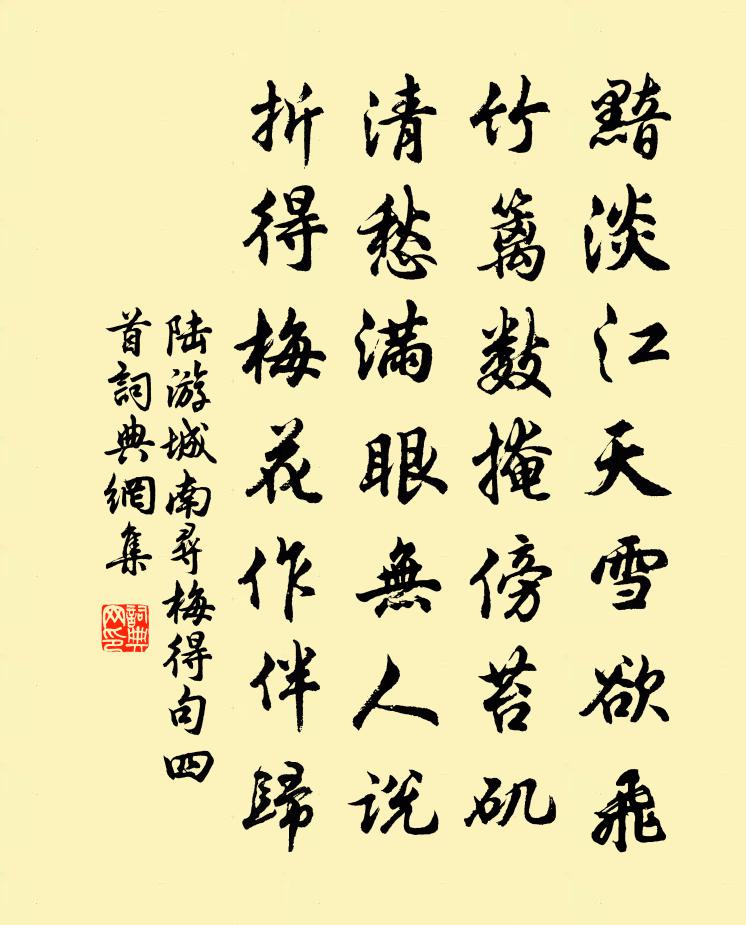 黯淡江天雪欲飛
竹籬數掩傍苔矶
清愁滿眼無人説
折得梅花作伴歸
陆游城南尋梅得句四
首詞典網集
詞典網印